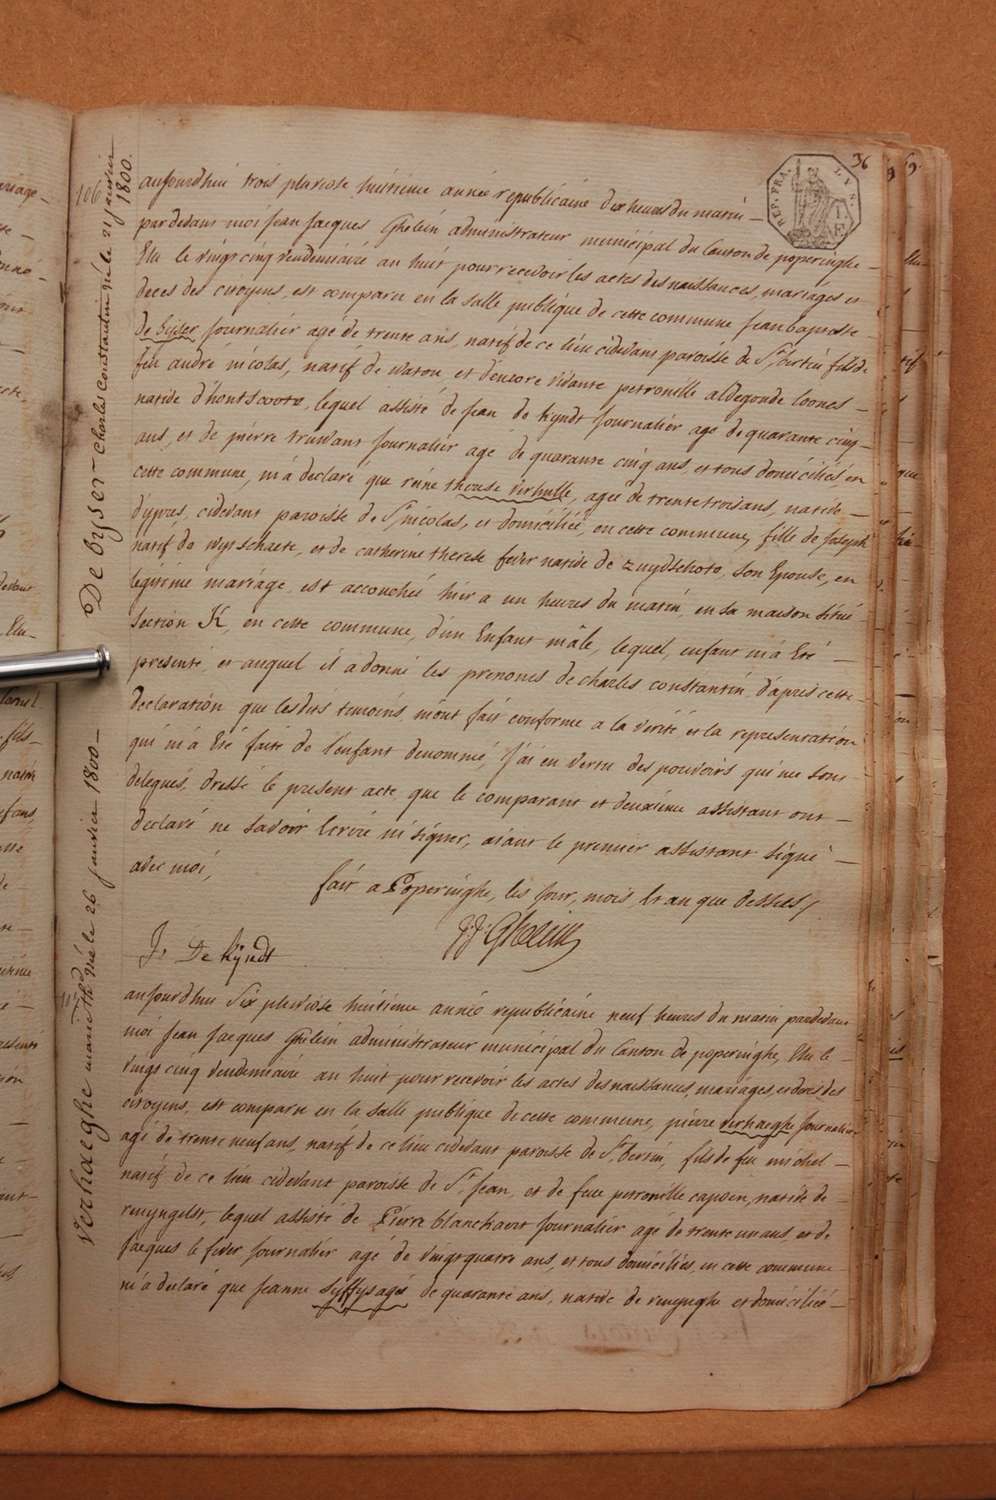 36
REP. FRA.
106
De Byser Charles Constantin né le 21 janvier 1800.
aujourdhui trois pluviose huitieme année republicaine dix heures du matin —
pardevant moi jean jacques Ghelein administrateur municipal du Canton de poperinghe —
Elu le vingt cinq vendemiaire an huit pour recevoir les actes des naissances, mariages et
deces des citoyens, est comparu en la salle publique de cette commune jean baptiste
de biser journalier agé de trente ans, natif de ce lieu cidevant paroisse de St. bertin fils de
feu andré nicolas, natif de watou, et d'encore vivante petronille aldegonde loones —
native d'hontscoote, lequel assisté de jean de Kyndt journalier agé de quarante cinq —
ans, et de pierre truwant journalier agé de quarante cinq ans, et tous domiciliés en
cette commune, m'a declaré que reine therese verhulle, agée de trente trois ans, native —
d'ypres, cidevant paroisse de St. nicolas, et domiciliée, en cette commune, fille de joseph
natif de wytschaete, et de catherine therese fever native de zuydschote, son Epouse, en
legitime mariage, est accouchée hier a un heures du matin, en sa maison situé
section K, en cette commune, d'un Enfant mâle, lequel, enfant m'a Eté —
presenté, et auquel il a donné les prenoms de charles constantin, d'apres cette
declaration que lesdits temoins, m'ont fait conforme a la verité et la representation
qui m'a Eté faite de l'enfant denommé, j'ai en vertu des pouvoirs qui me sont
delegués, dressé le present acte, que le comparant et deuxieme assistant ont —
declaré ne savoir Ecrire ni signer, aiant le premier assistant signé —
avec moi,
fait a Poperinghe, les jour, mois, Et an que dessus,
J: De Kÿndt
J:J: Ghelein
Verhaeghe marie Thd née le 26 janvier 1800 —
aujourdhui Six pluviose huitieme année republicaine neuf heures du matin pardevant
moi jean jacques Ghelein administrateur municipal du Canton de poperinghe, Elu le —
vingt cinq vendemiaire an huit pour recevoir les actes des naissances, mariages, et deces des
citoyens, est comparu en la salle publique de cette commune, pierre verhaeghe journalier
agé de trente neuf ans, natif de ce lieu cidevant paroisse de St. bertin, fils de feu michel —
natif de ce lieu cidevant paroisse de St. jean, et de feue petronille capoen, native de —
reninghelst, lequel assisté de Pierre blanckaert journalier agé de trente un ans et de
jacques le fever journalier agé de vingt quatre ans, et tous domiciliés, en cette commune
m'a declaré que jeanne syffys agée de quarante ans, native de reninghe et domiciliée —